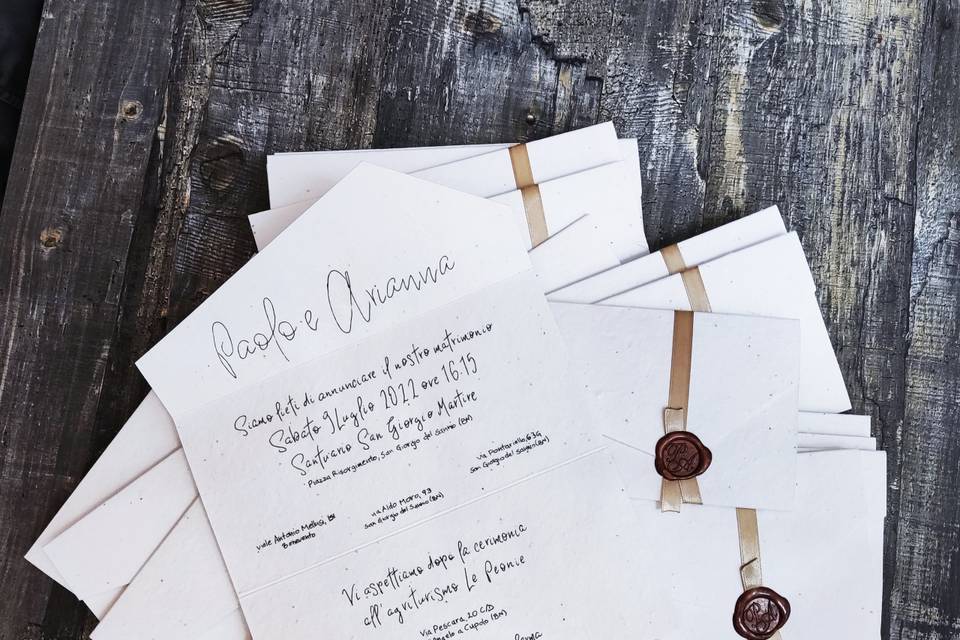 Paolo e Arianna
Siamo lieti di annunciare il nostro matrimonio
Sabato 9 Luglio 2022 ore 16.15
Santuario San Giorgio Martire
Piazza Risorgimento, San Giorgio del Sannio (BN)
viale Antonio Mellusi, 131
Benevento
via Aldo Moro, 93
San Giorgio del Sannio (BN)
via Pontariello, 63G
San Giorgio del Sannio (BN)
Vi aspettiamo dopo la cerimonia
all' agriturismo Le Peonie
Via Pescara, 20 C/D
Angelo a Cupolo (BN)